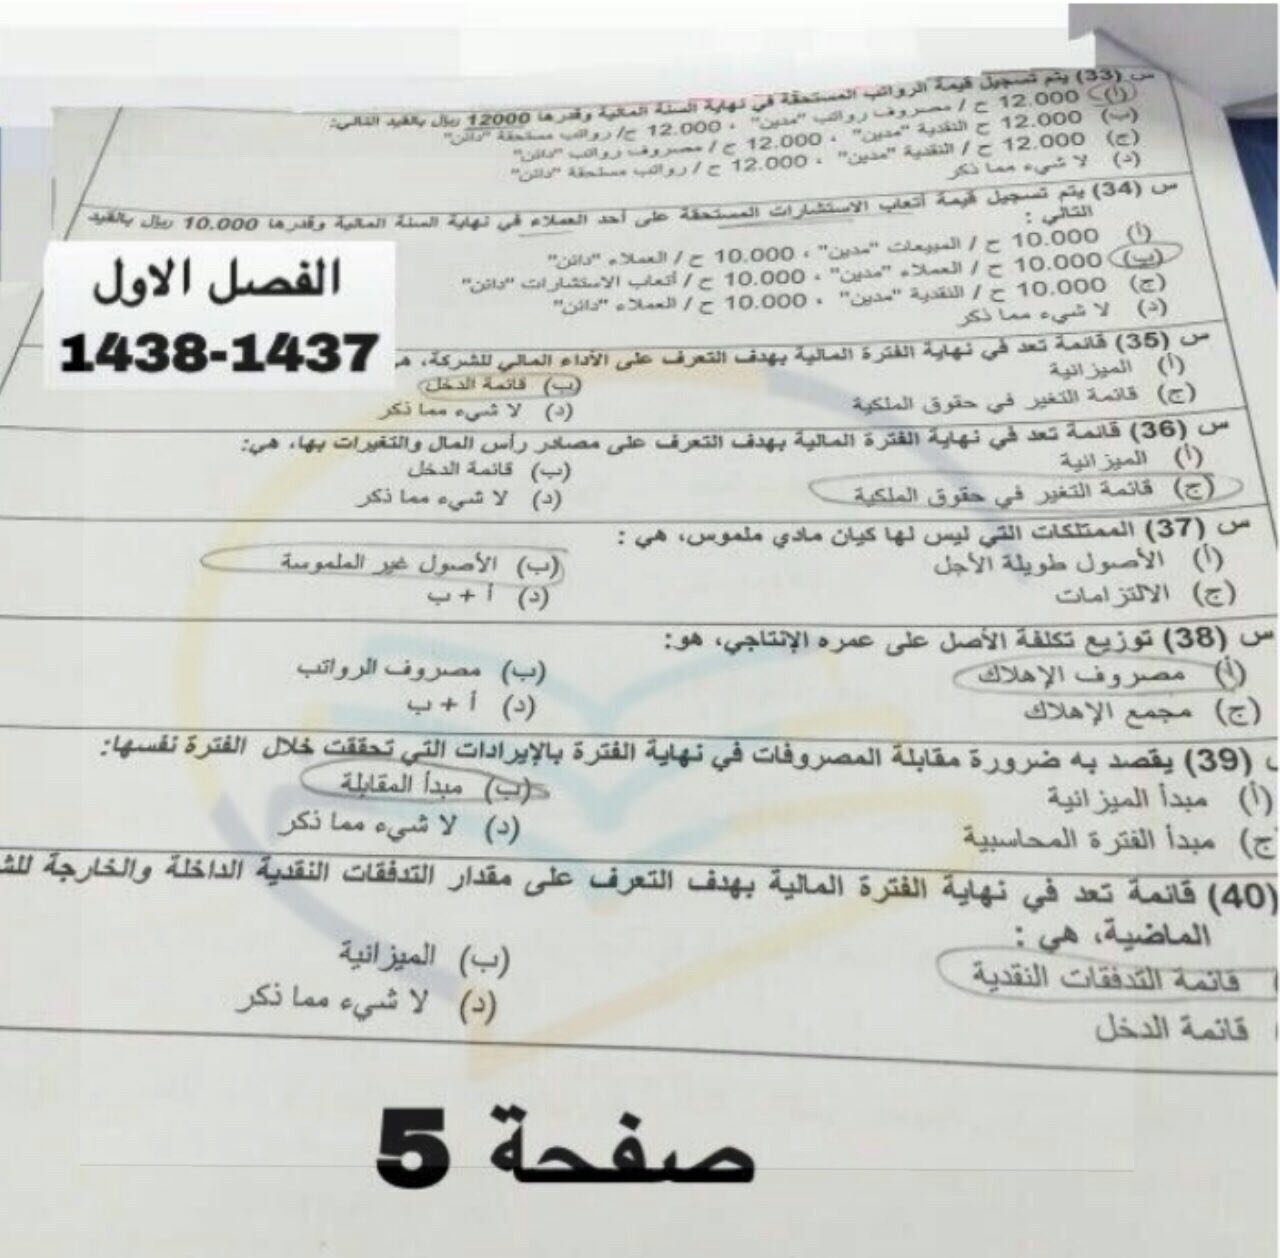 س (33) يتم تسجيل قيمة الرواتب المستحقة في نهاية السنة المالية وقدرها 12000 ريال بالقيد التالي:
(أ) 12.000 ح / مصروف رواتب "مدين" ، 12.000 ح/ رواتب مستحقة "دائن"
(ب) 12.000 ح النقدية "مدين" ، 12.000 ح / مصروف رواتب "دائن"
(ج) 12.000 ح / النقدية "مدين" ، 12.000 ح / رواتب مستحقة "دائن"
(د) لا شيء مما ذكر
س (34) يتم تسجيل قيمة أتعاب الاستشارات المستحقة على أحد العملاء في نهاية السنة المالية وقدرها 10.000 ريال بالقيد
التالي :
(أ) 10.000 ح / المبيعات "مدين" ، 10.000 ح / العملاء "دائن"
(ب) 10.000 ح / العملاء "مدين" ، 10.000 ح / أتعاب الاستشارات "دائن"
(ج) 10.000 ح / النقدية "مدين" ، 10.000 ح / العملاء "دائن"
(د) لا شيء مما ذكر
الفصل الاول
1438-1437
س (35) قائمة تعد في نهاية الفترة المالية بهدف التعرف على الأداء المالي للشركة، هي
(أ) الميزانية (ب) قائمة الدخل
(ج) قائمة التغير في حقوق الملكية (د) لا شيء مما ذكر
س (36) قائمة تعد في نهاية الفترة المالية بهدف التعرف على مصادر رأس المال والتغيرات بها، هي:
(أ) الميزانية (ب) قائمة الدخل
(ج) قائمة التغير في حقوق الملكية (د) لا شيء مما ذكر
س (37) الممتلكات التي ليس لها كيان مادي ملموس، هي :
(أ) الأصول طويلة الأجل (ب) الأصول غير الملموسة
(ج) الالتزامات (د) أ + ب
س (38) توزيع تكلفة الأصل على عمره الإنتاجي، هو:
(أ) مصروف الإهلاك (ب) مصروف الرواتب
(ج) مجمع الإهلاك (د) أ + ب
(39) يقصد به ضرورة مقابلة المصروفات في نهاية الفترة بالإيرادات التي تحققت خلال الفترة نفسها:
(أ) مبدأ الميزانية (ب) مبدأ المقابلة
ج) مبدأ الفترة المحاسبية (د) لا شيء مما ذكر
(40) قائمة تعد في نهاية الفترة المالية بهدف التعرف على مقدار التدفقات النقدية الداخلة والخارجة
الماضية، هي :
قائمة التدفقات النقدية (ب) الميزانية
قائمة الدخل (د) لا شيء مما ذكر
صفحة 5